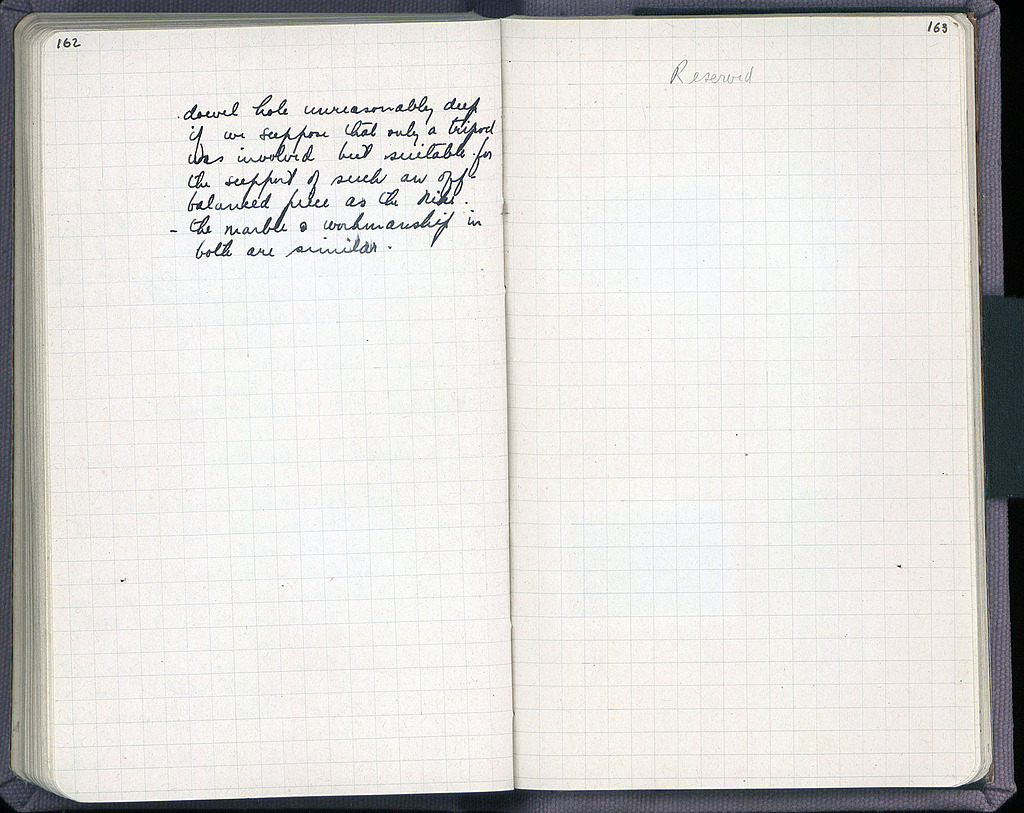 162
. dowel hole unreasonably deep
if we suppose that only a tripod
was involved but suitable for
the support of such an off-
balanced piece as the Nike.
- the marble & workmanship in
both are similar.
163
Reserved